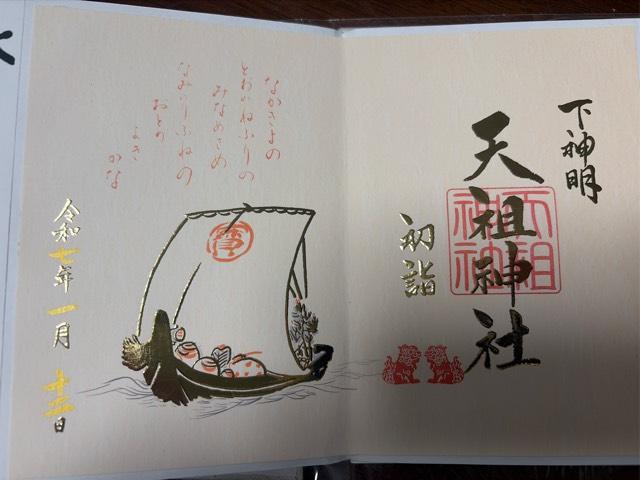 下神明
天祖神社
天祖
神社
初詣
なかきよの
とおのねふりの
みなめさめ
なみのりふねの
おとの
よき
かな
寶
令和七年一月十三日